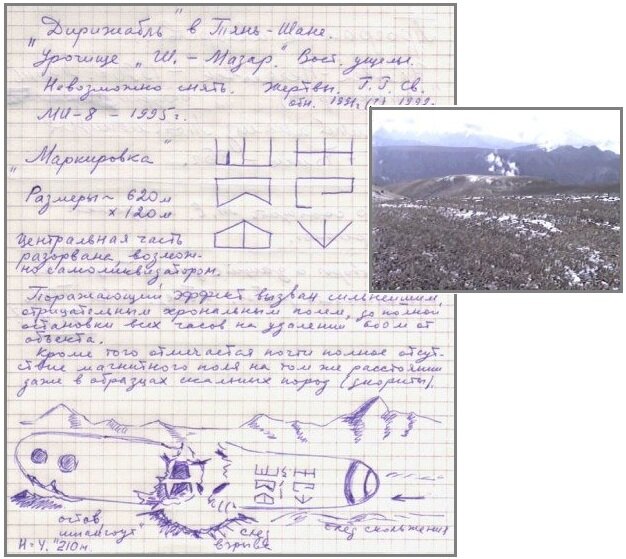 "Дирижабль" в Тянь-Шане.
Урочище "Ш.-Мазар." Вост. ущелье.
Невозможно снять. Жертвы. Г.Г. Св.
отн. 1991г. (?) 1992.
МИ-8 - 1995г.
"Маркировка"
Размеры ~ 620м
х 120м
Центральная часть
разорвана, возмож-
но самоликвизатором.
Поражающий эффект вызван сильнейшим,
отрицательным хрональным полем, до полной
остановки всех часов на удалении 800м от
объекта.
Кроме того отмечается почти полное отсут-
ствие магнитного поля на том же расстоянии
даже в образцах скальных пород (диориты).
остов
"шпангоут"
след
взрыва
след скольжения
210м